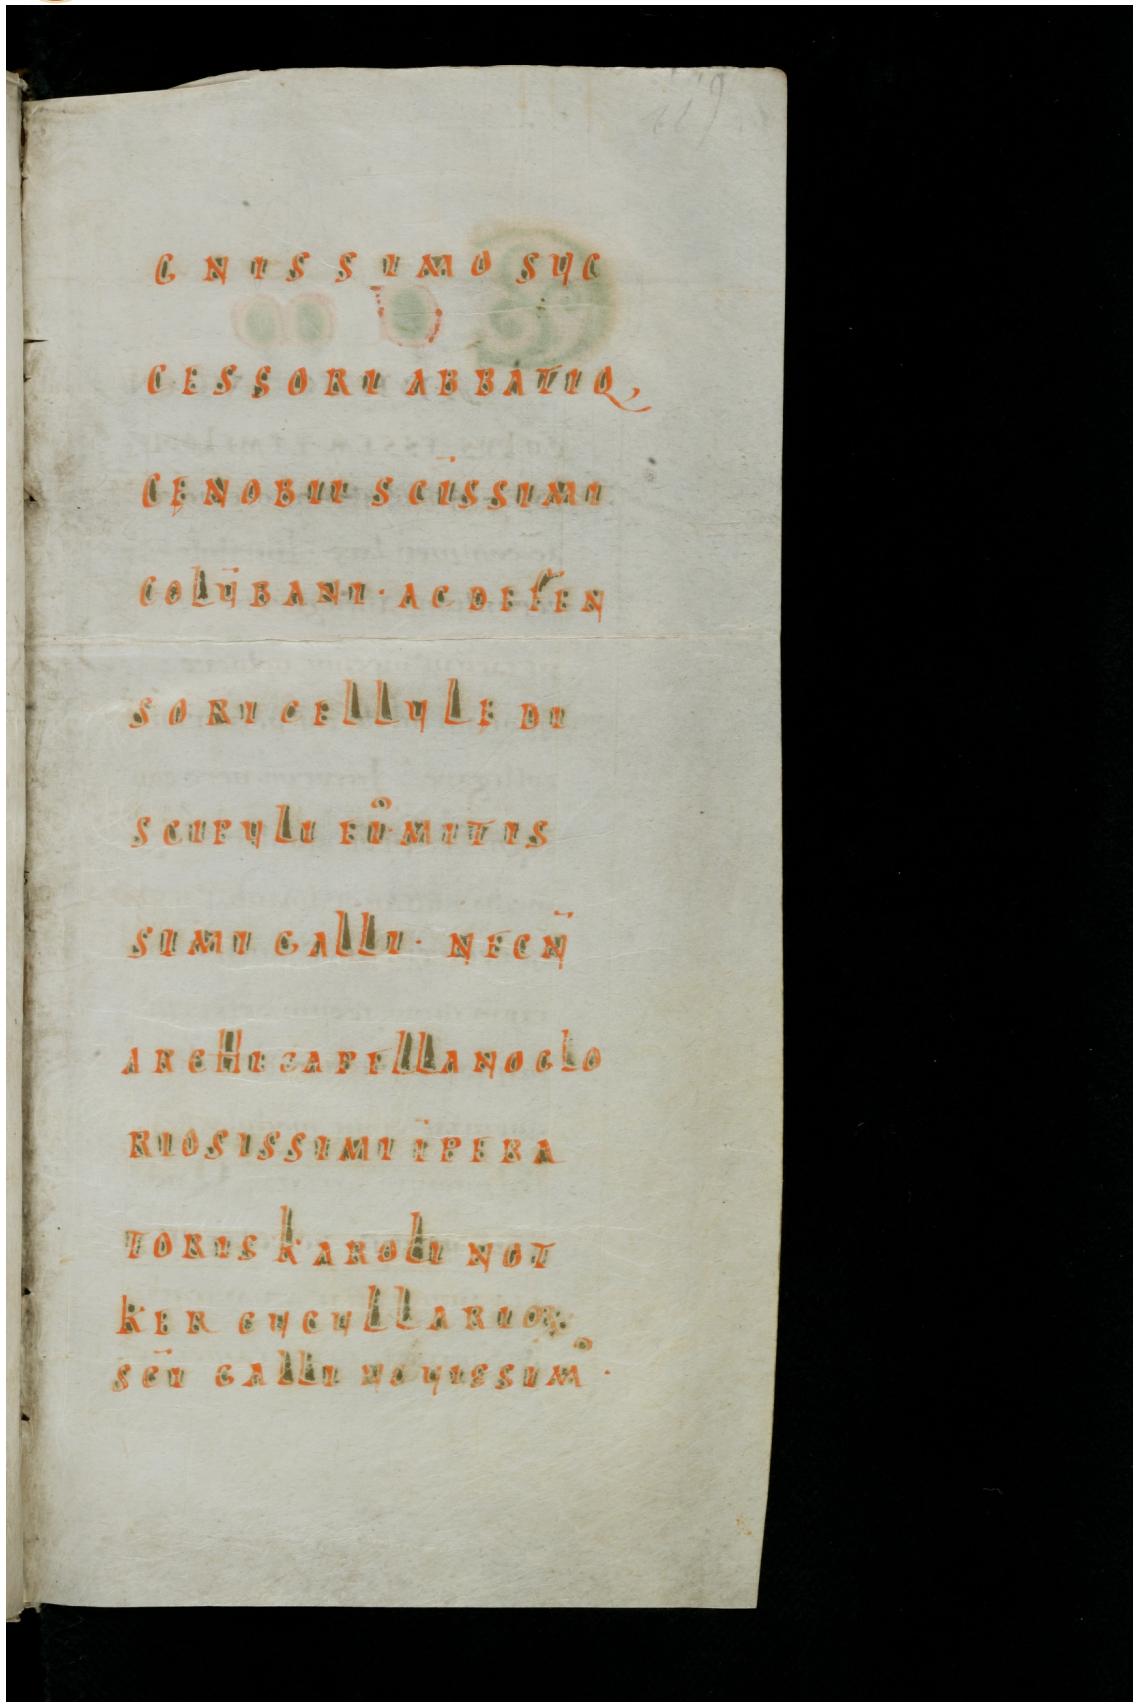 GNISSIMO SUC
CESSORI ABBATIQ,
CENOBII SCI̅SSIMI
COLU̅BANI · AC DEFEN
SORI CELLULE DI
SCIPULI EI͛ MITIS
SIMI GALLI · NECN̅
ARCHICAPELLANO GLO
RIOSISSIMI I̅PERA
TORIS KAROLI NOT
KER CUCULLARIOꝝ
SC̅I GALLI NOUISSIMᵒ ·